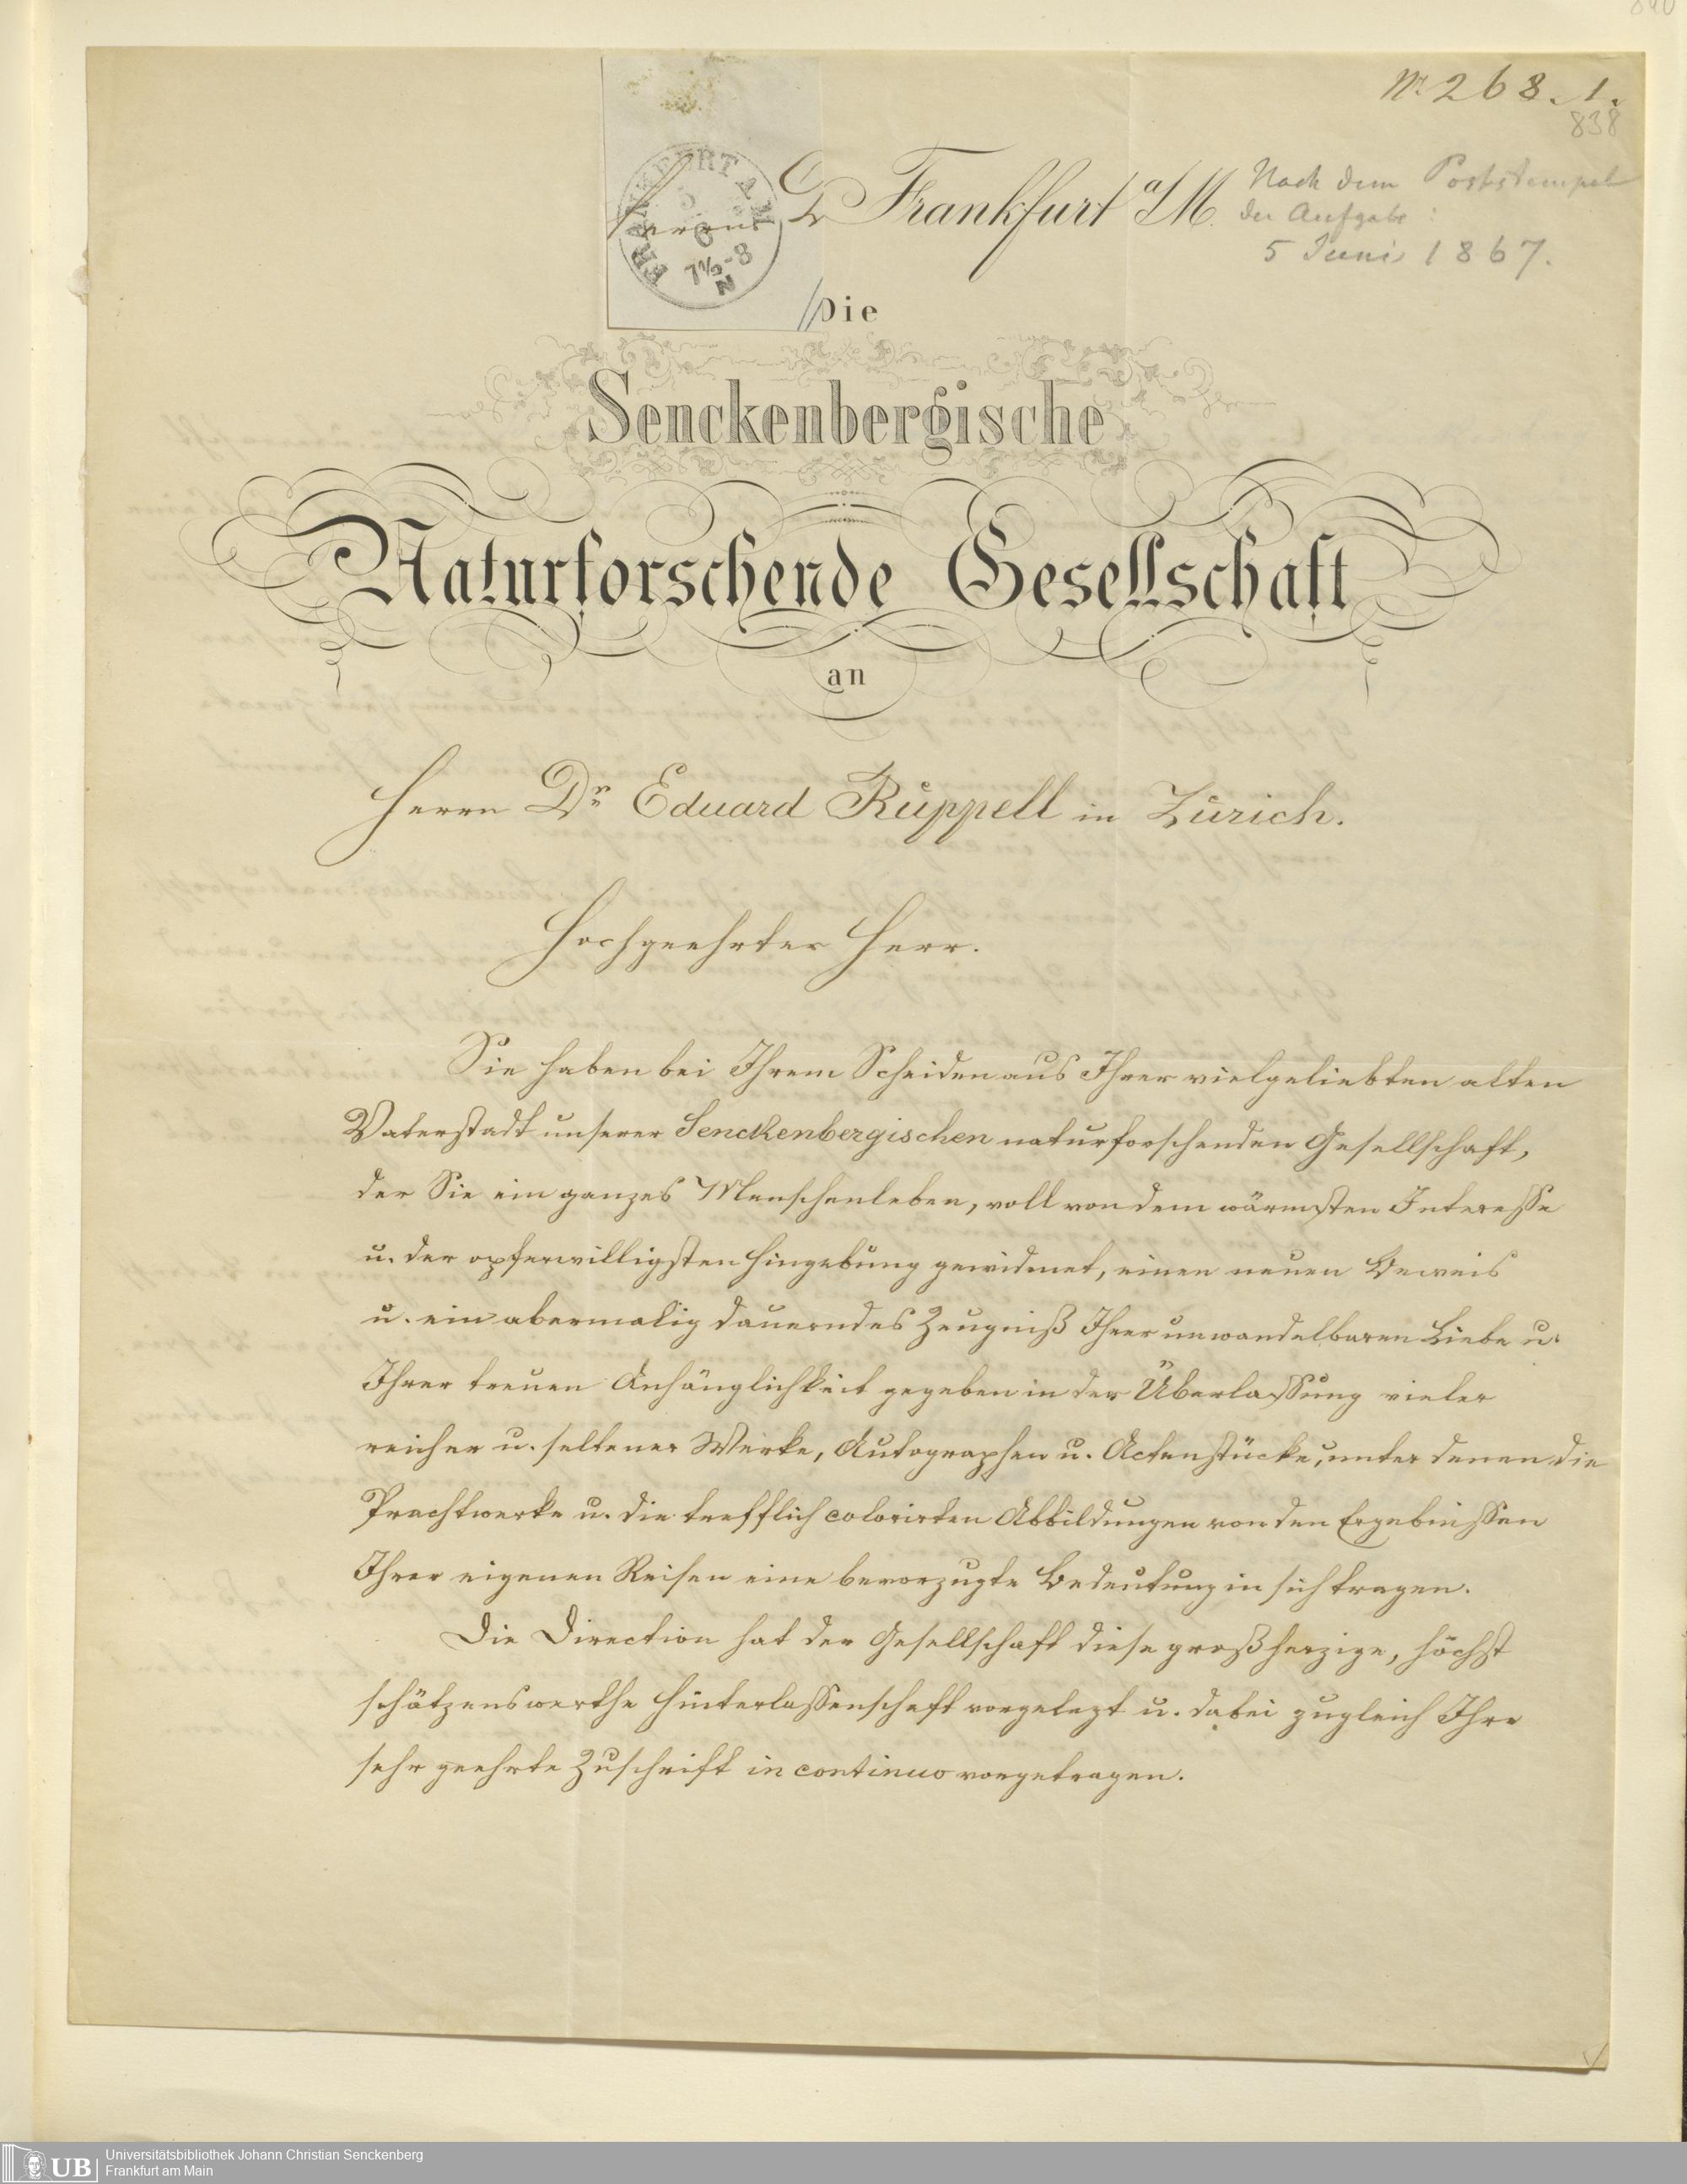 Nr. 268. 1.
838
FRANKFURT A.
Herrn D
7½-8
N
Frankfurt a/M.
Nach dem Poststempel
der Aufgabe:
5 Juni 1867.
Die
Senckenbergische
Naturforschende Gesellschaft
an
Herrn Dr Eduard Rüppell in Zürich.
Hochgeehrter Herr.
Sie haben bei Ihrem Scheiden aus Ihrer vielgeliebten alten
Vaterstadt unserer Senckenbergischen naturforschenden Gesellschaft,
der Sie ein ganzes Menschenleben, voll von dem wärmsten Interesse
u. der opferwilligsten Hingebung gewidmet, einen neuen Beweis
u. ein abermalig dauerndes Zeugniß Ihrer unwandelbaren Liebe u.
Ihrer treuen Anhänglichkeit gegeben in der Überlassung vieler
reicher u. seltener Werke, Autographen u. Actenstücke, unter denen die
Prachtwerke u. die trefflich colorirten Abbildungen von den Ergebnissen
Ihrer eigenen Reisen eine bevorzugte Bedeutung in sich tragen.
Die Direction hat der Gesellschaft diese großherzige, höchst
schätzenswerthe Hinterlassenschaft vorgelegt u. dabei zugleich Ihre
sehr geehrte Zuschrift in continuo vorgetragen.
UB
Universitätsbibliothek Johann Christian Senckenberg
Frankfurt am Main